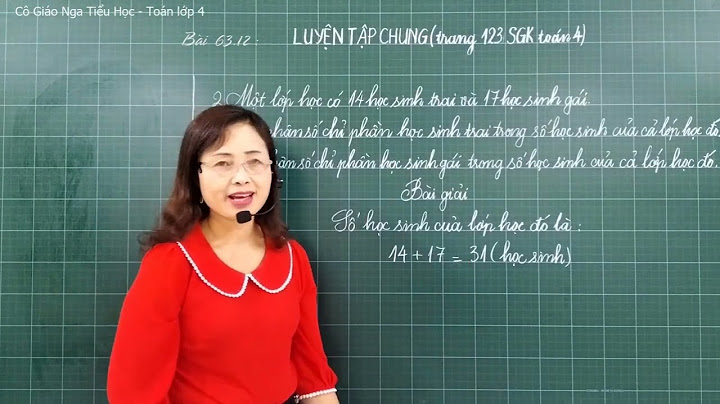 Cô Giáo Nga Tiểu Học - Toán lớp 4
Bài 63.12 : LUYỆN TẬP CHUNG (trang 123 SGK toán 4)
2. Một lớp học có 14 học sinh trai và 17 học sinh gái.
phân số chỉ phần học sinh trai trong số học sinh của cả lớp học đó.
số chỉ phần học sinh gái trong số học sinh của cả lớp học đó.
Bài giải
Số học sinh của lớp học đó là :
14 + 17 = 31 (học sinh)